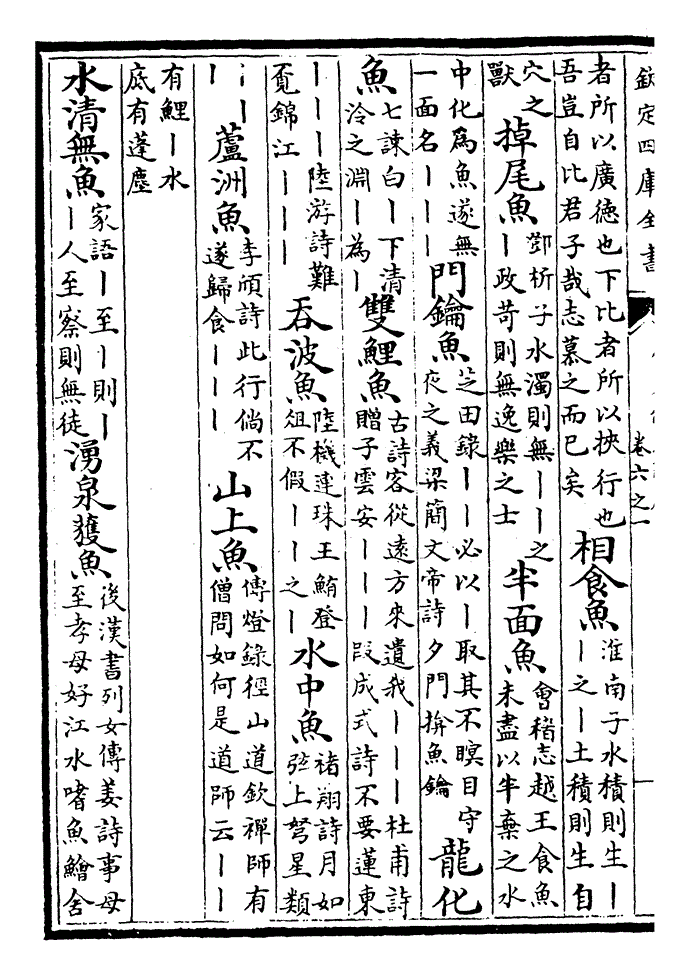 欽定四庫全書
卷六之一
者所以廣德也下比者所以挾行也
吾豈自比君子哉志慕之而已矣
相食魚
淮南子水積則生丨
丨之丨土積則生自
穴之
獸
掉尾魚
鄧析子水濁則無丨丨之
丨政苛則無逸樂之士
半面魚
會稽志越王食魚
未盡以半棄之水
中化爲魚遂無
一面名丨丨丨
門鑰魚
芝田錄丨丨必以丨取其不瞑目守
夜之義梁簡文帝詩夕門掩魚鑰
龍化
魚
七諫白丨下清
泠之淵丨為丨
雙鯉魚
古詩客從遠方來遺我丨丨丨杜甫詩
贈子雲安丨丨丨段成式詩不要蓮東
丨丨丨陸游詩難
覔錦江丨丨丨
吞波魚
陸機連珠王鮪登
俎不假丨丨之丨
水中魚
禇翔詩月如
弦上弩星類
丨丨
丨
蘆洲魚
李頎詩此行倘不
遂歸食丨丨丨
山上魚
傳燈錄徑山道欽禪師有
僧問如何是道師云丨丨
有鯉丨水
底有蓬塵
水清無魚
家語丨至丨則丨
丨人至察則無徒
湧泉獲魚
後漢書列女傳姜詩事母
至孝母好江水嗜魚鱠舍